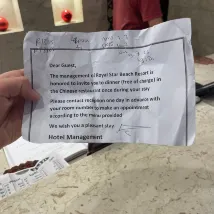 Dear Guest,
The management of Royal Star Beach Resort is
honored to invite you to dinner (free of charge) in
the Chinese restaurant once during your stay
Please contact reception one day in advance with
your room number to make an appointment
according to the menu provided
We wish you a pleasant stay
Hotel Management